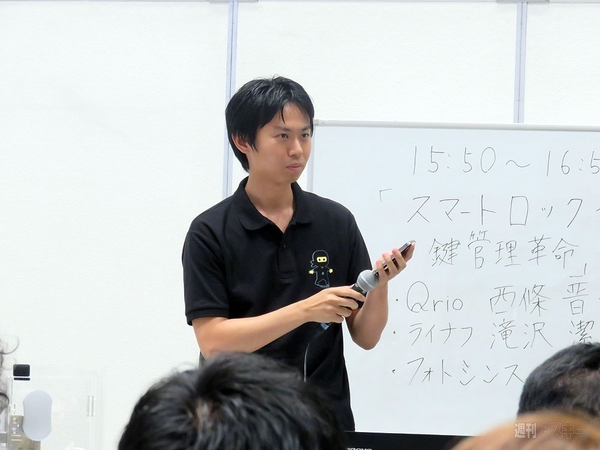 15:50～16:5
「スマートロック
鍵管理革命」
・Qrio 西條 晋
・ライナフ 滝沢 潔
・フォトシンス
週刊